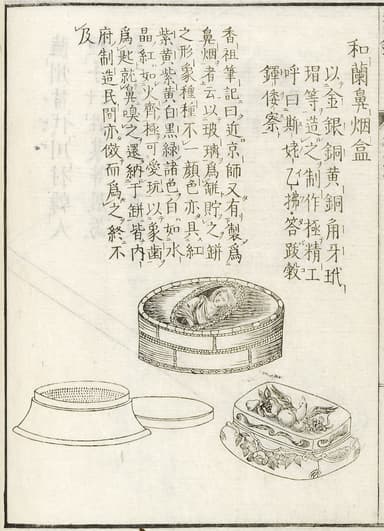 和蘭鼻烟盒
以金銀銅黄銅角牙玳
瑁等造之制作極精工
呼曰斯姥乙拂答跋穀
鐸倭察
香祖筆記曰近京師又有製為
鼻烟者云以玻璃為缾貯之缾
之形象種種不一顏色亦具紅
紫黄白黒緑諸色白如水
晶紅如火齊極可愛玩以象齒
為匙就鼻嗅之還納于缾皆内
府制造民間亦倣而為之終不
及